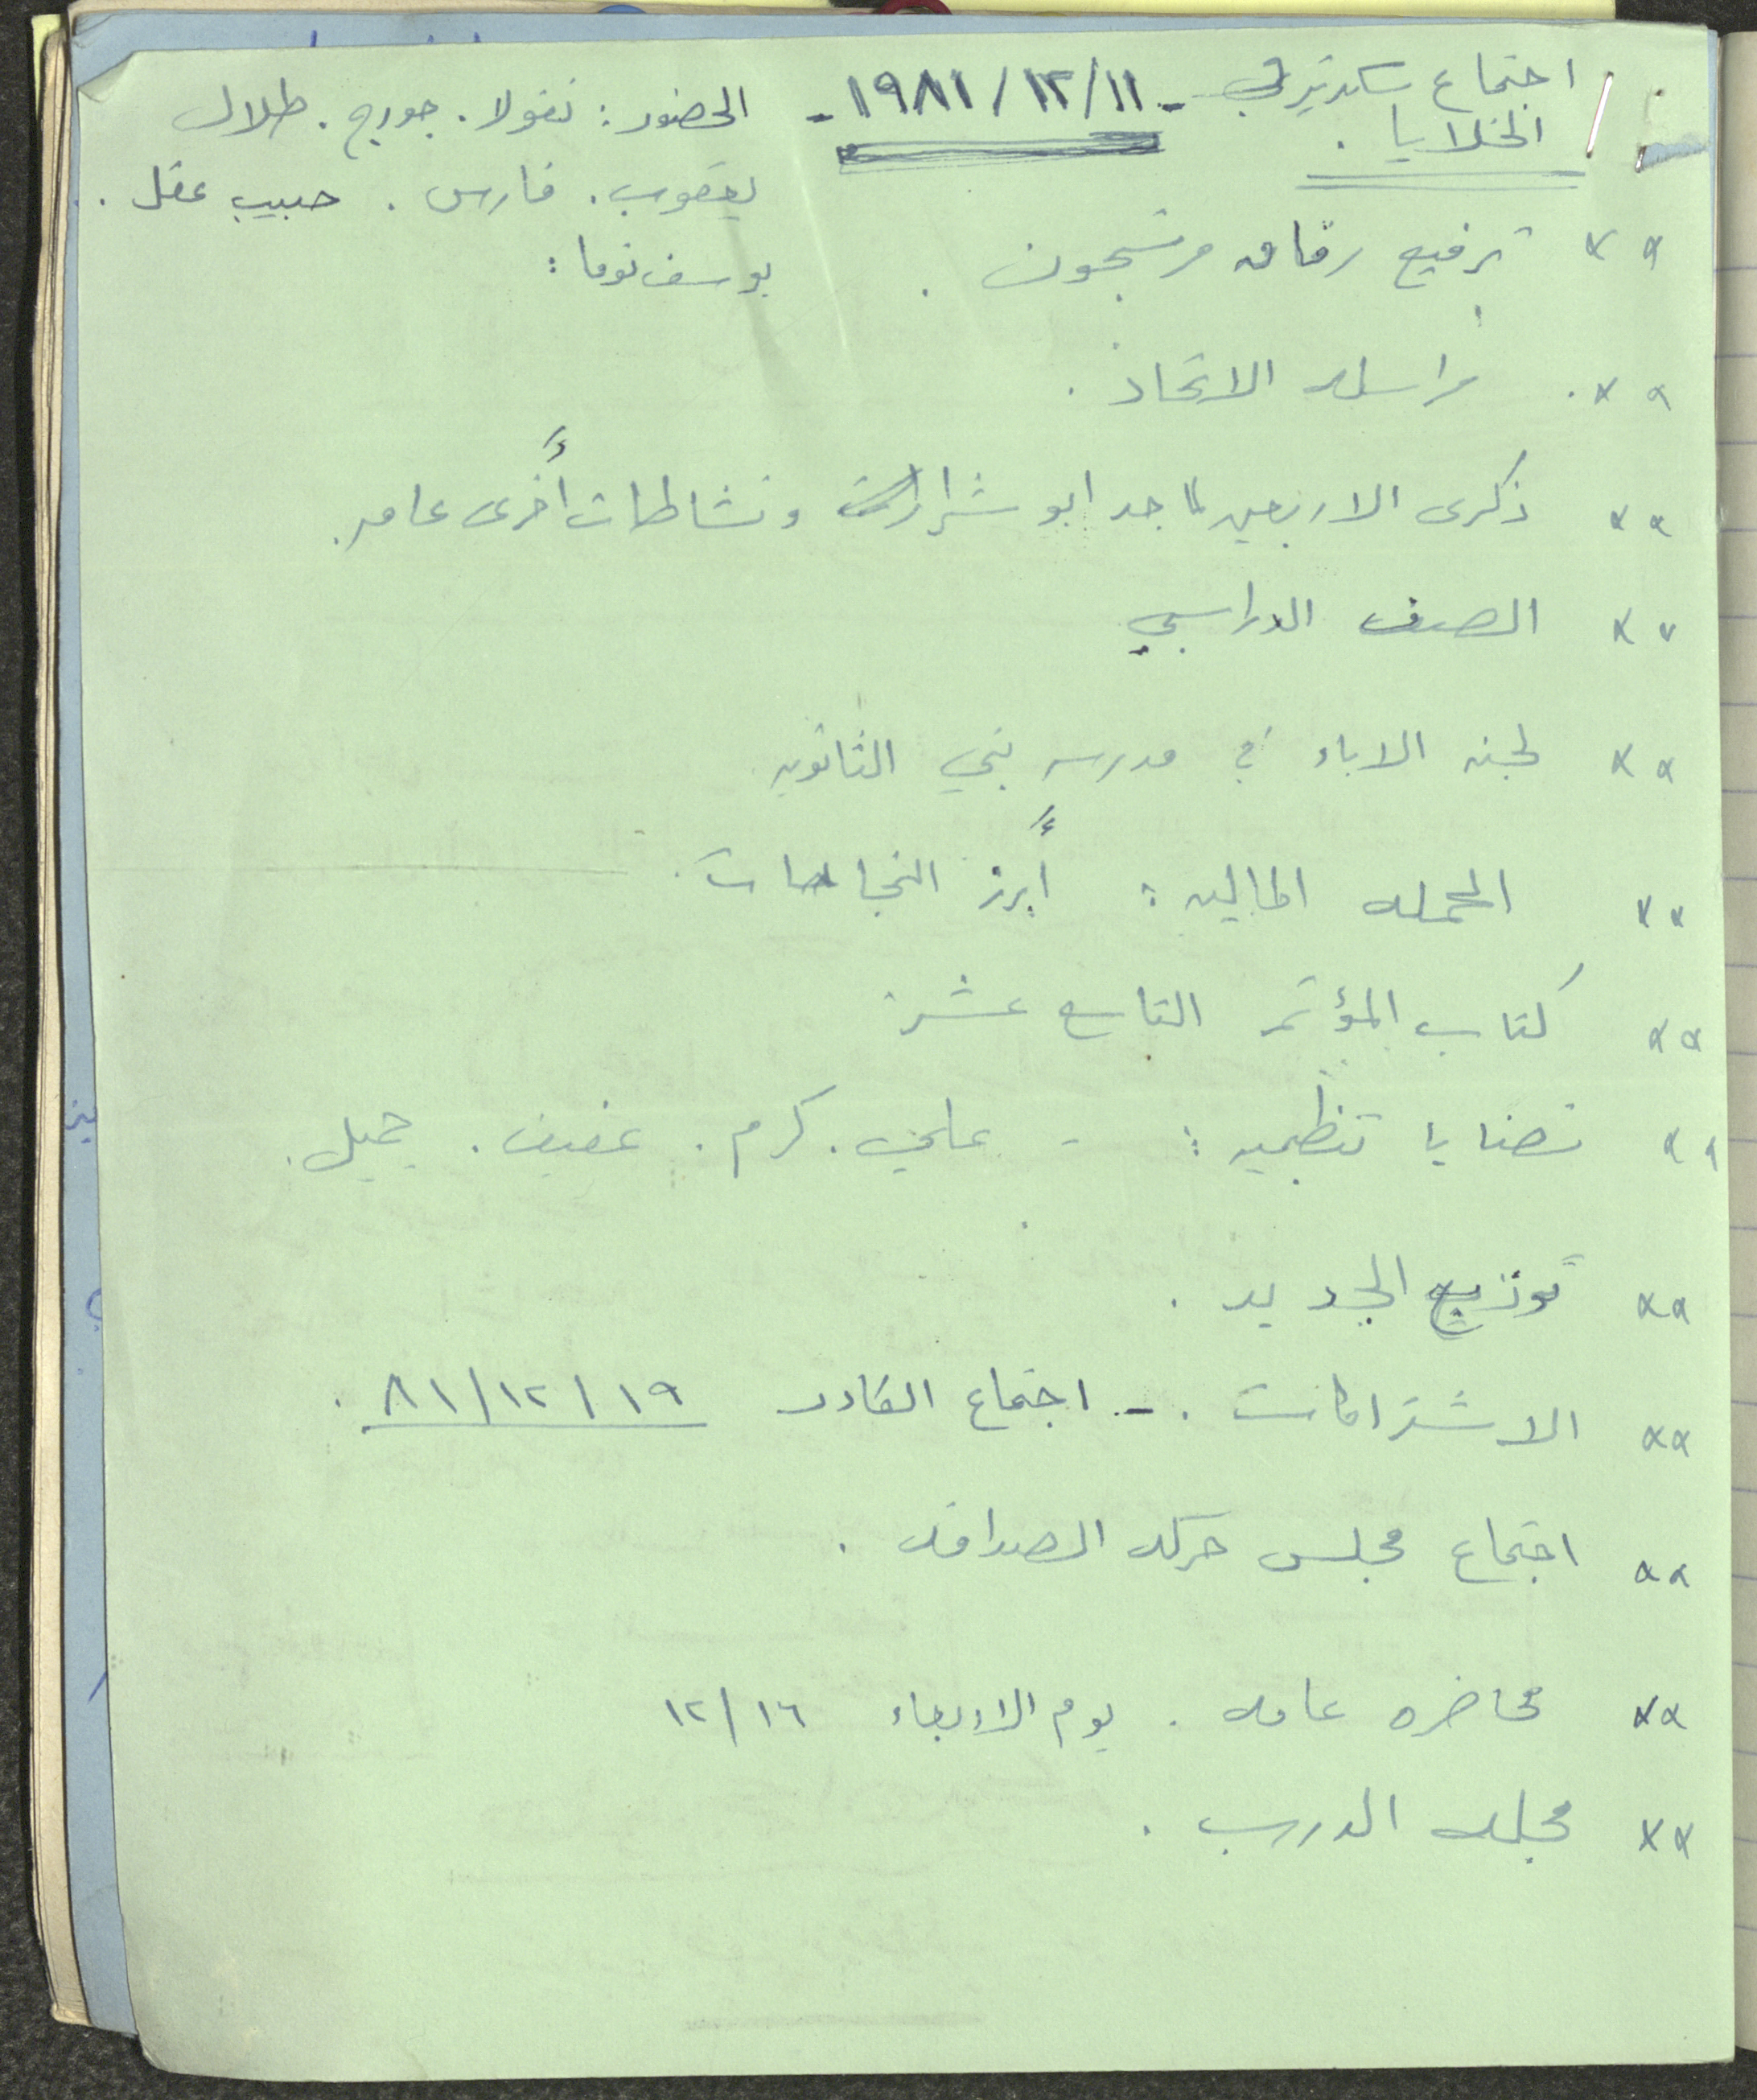 اجتماع سكرتيري الخلايا . - ١٩٨١/١٢/١١ - الحضور : نقولا . جورج . طلال
يعقوب . فارس . حبيب عقل .
يوسف توما :
×× ترفيع رفاق مرشحون .
×× . مراسله الاتحاد .
×× ذكرى الاربعين لماجد ابو شرار ونشاطات أخرى عامه .
×× الصف الدراسي
×× لجنه الاباء في مدرسه بني الثانويه
×× الحمله الماليه : أبرز النجاحات .
×× كتاب المؤتمر التاسع عشر
×× قضايا تنظيميه : - علي . كرم . عفيف . جميل .
×× توزيع الجديد .
×× الاشتراكات . - اجتماع الكادر ٨١/١٢/١٩ .
×× اجتماع مجلس حركه الصداقه .
×× محاضره عامه . يوم الاربعاء ١٢/١٦
×× مجله الدرب .